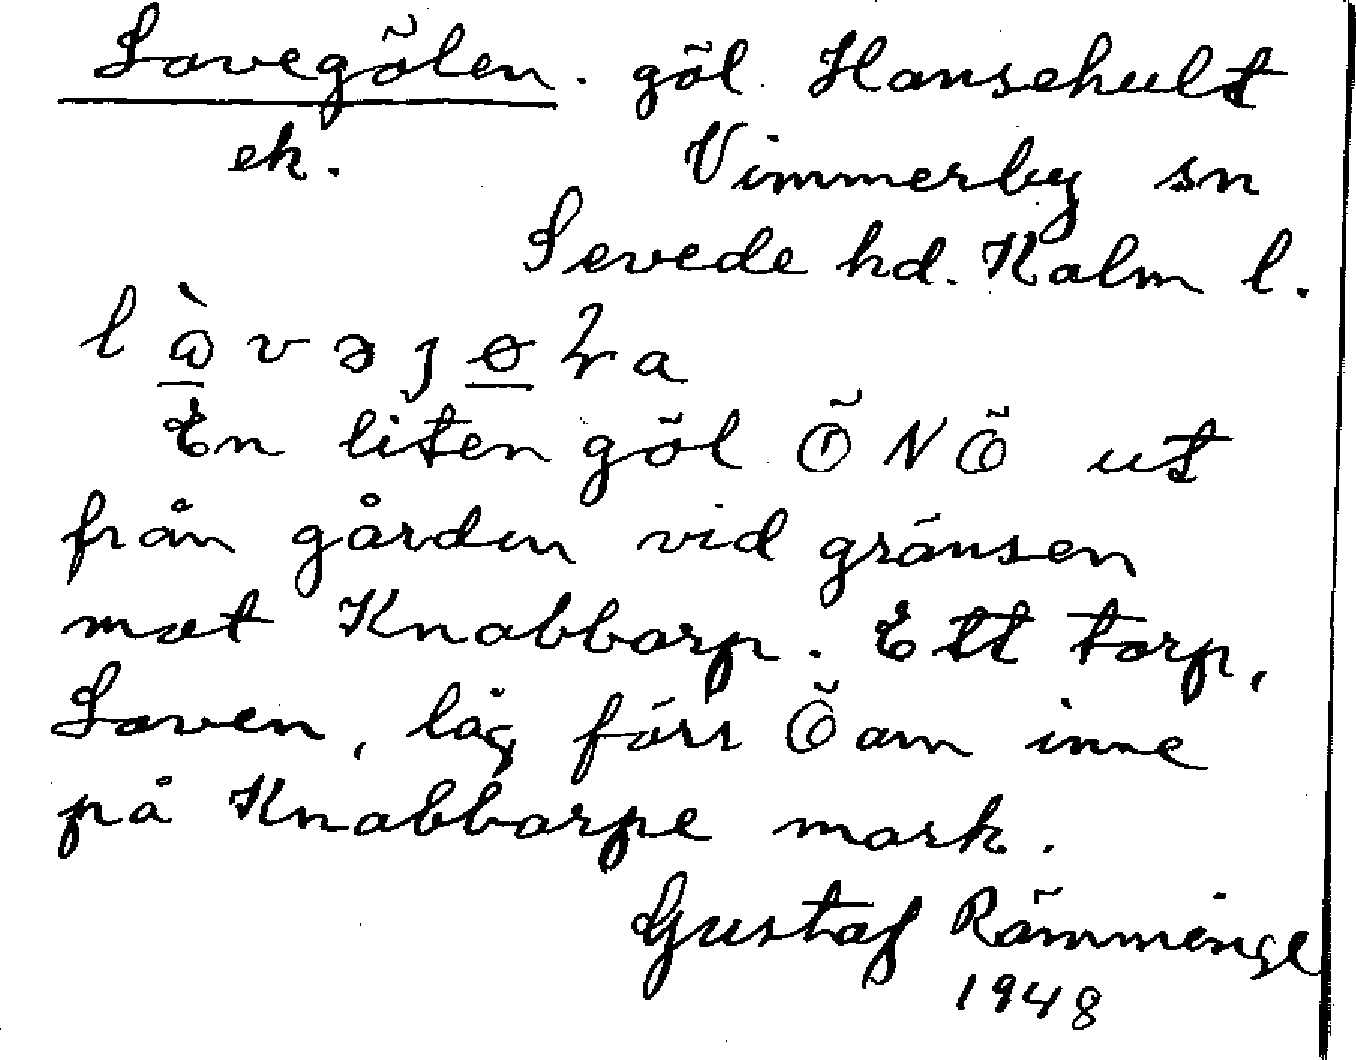 Lovegölen. göl. Hansehult
ek. Vimmerby sn
Sevede hd. Kalm l.
En liten göl ÖNÖ ut
från gården vid gränsen
mot Knabbarp. Ett torp,
Loven, låg förr Öam inne
på Knabbarps mark.
Gustaf Rämminge
1948